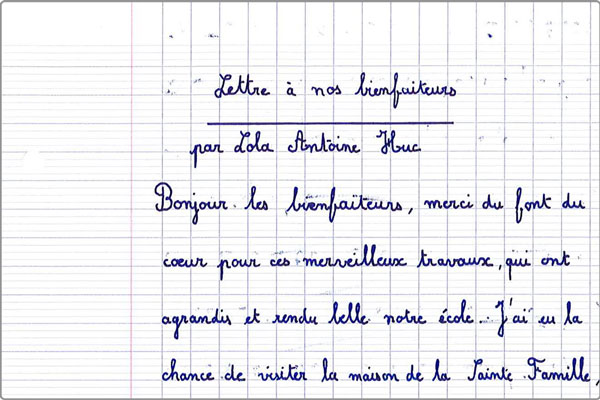 Lettre à nos bienfaiteurs
par Lola Antoine Huc
Bonjour les bienfaiteurs, merci du font du
coeur pour ces merveilleux travaux, qui ont
agrandis et rendu belle notre école. J'ai eu la
chance de visiter la maison de la Sainte Famille,